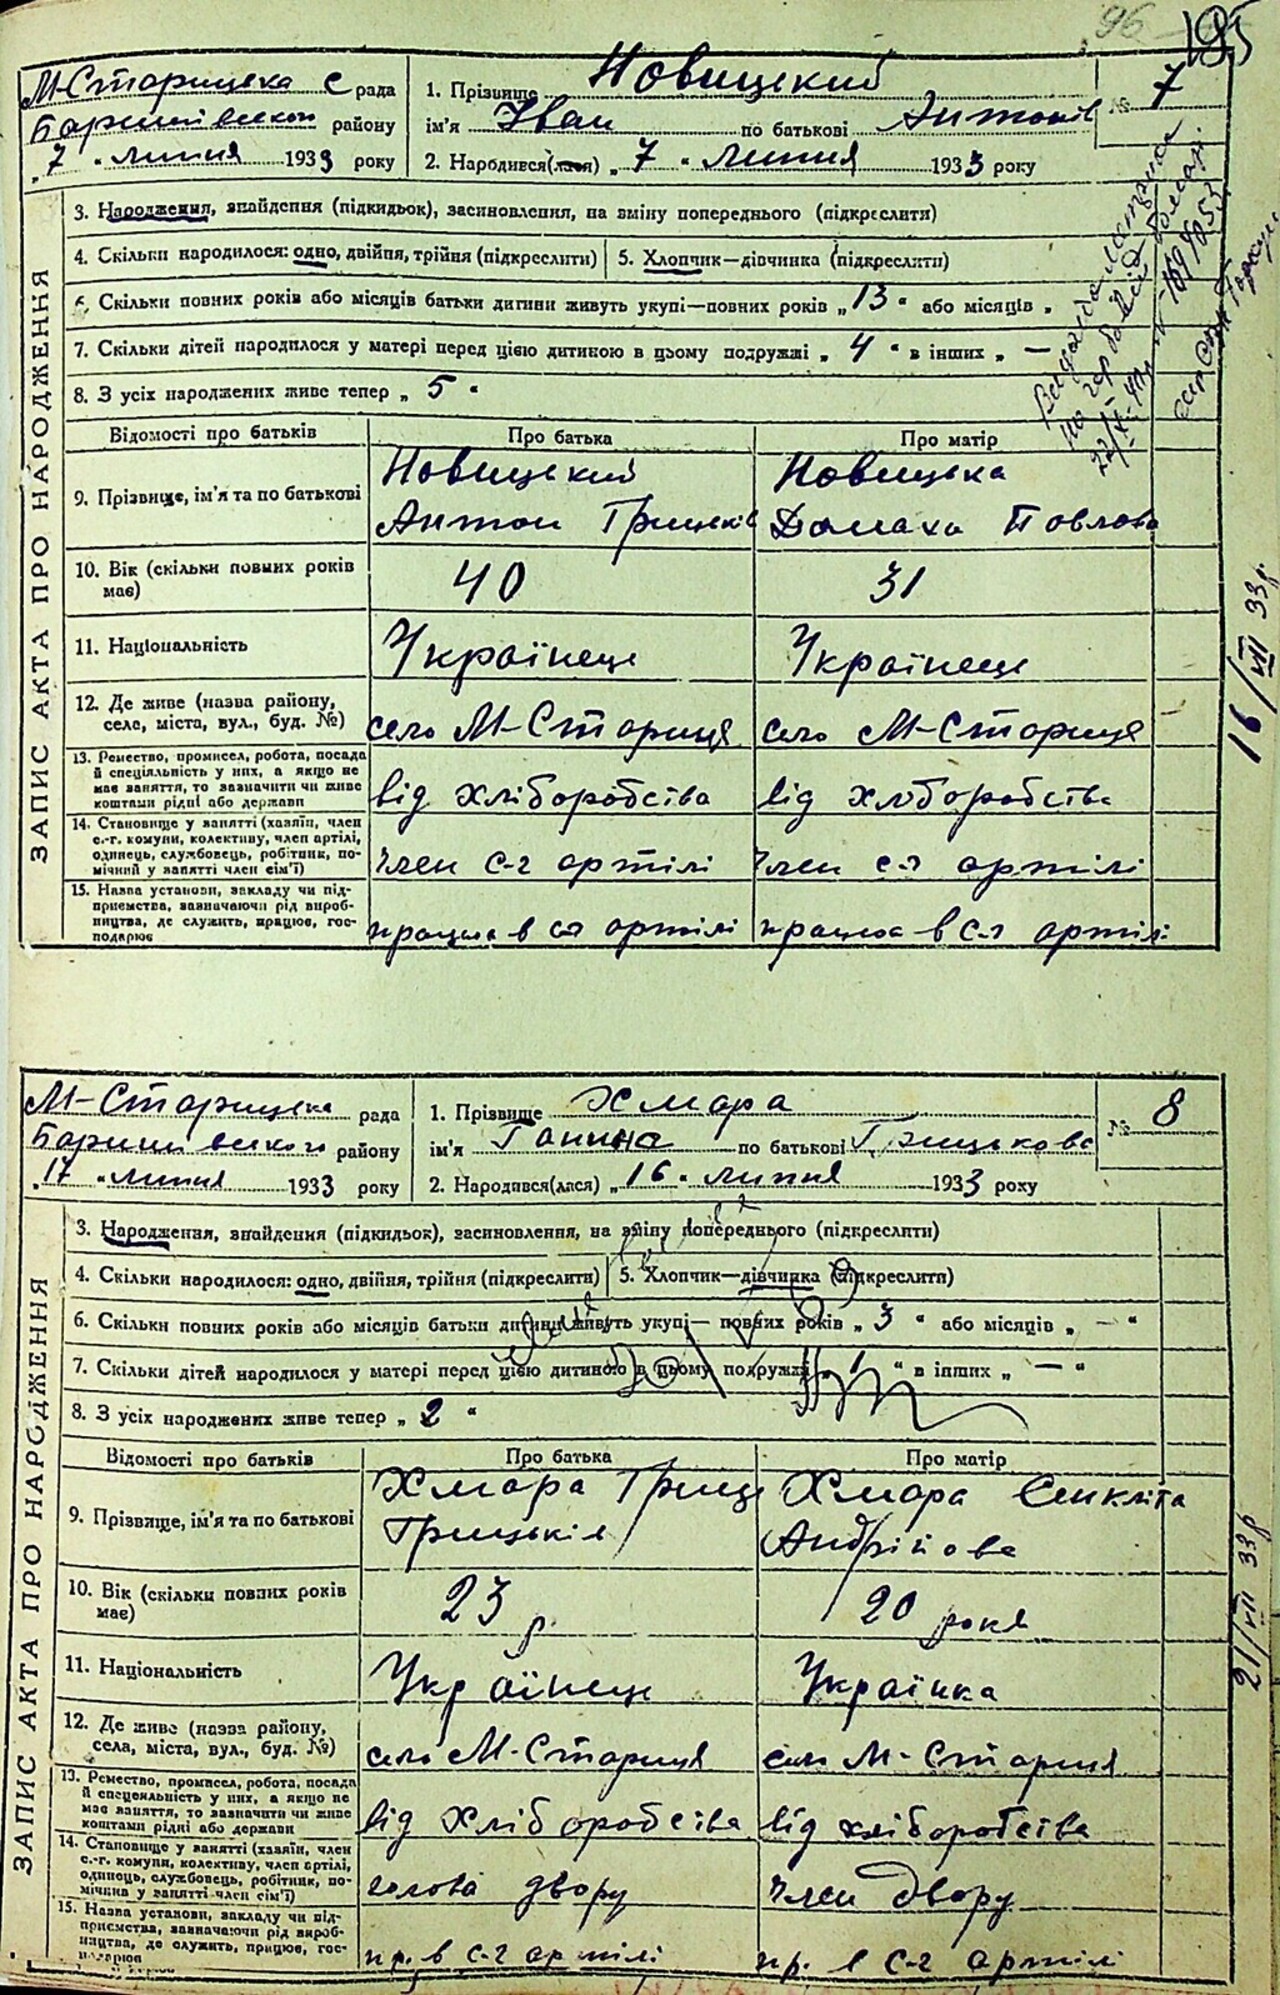 96 195
М-Старицька с рада
Баришівського району
„7“ липня 1933 року
1. Прізвище Новицький
ім'я Іван по батькові Антонів
2. Народився(лася) „7“ липня 1933 року
№ 7
ЗАПИС АКТА ПРО НАРОДЖЕННЯ
3. Народження, знайдення (підкидьок), засиновлення, на зміну попереднього (підкреслити)
4. Скільки народилося: одно, двійня, трійня (підкреслити)
5. Хлопчик—дівчинка (підкреслити)
6. Скільки повних років або місяців батьки дитини живуть укупі—повних років „13“ або місяців „
7. Скільки дітей народилося у матері перед цією дитиною в цьому подружжі „4“ в інших „ —
8. З усіх народжених живе тепер „5“
Відомості про батьків
Про батька
Про матір
9. Прізвище, ім'я та по батькові
Новицький
Антон Грицьків
Новицька
Домаха Павлова
10. Вік (скільки повних років
має)
40
31
11. Національність
Українець
Українець
12. Де живе (назва району,
села, міста, вул., буд. №)
село М-Стариця
село М-Стариця
13. Ремество, промисел, робота, посада
й спеціяльність у них, а якщо не
має заняття, то зазначити чи живе
коштами рідні або держави
від хліборобства
від хліборобства
14. Становище у занятті (хазяїн, член
с.-г. комуни, колективу, член артілі,
одинець, службовець, робітник, по-
мічний у занятті член сім'ї)
член с-г артілі
член с-г артілі
15. Назва установи, закладу чи під-
приємства, зазначаючи рід вироб-
ництва, де служить, працює, гос-
подарює
працює в с-г артілі
працює в с-г артілі
16/VII 33р.
М-Старицька рада
Баришівського району
„17“ липня 1933 року
1. Прізвище Хмара
ім'я Ганна по батькові Грицькова
2. Народився(лася) „16“ липня 1933 року
№ 8
ЗАПИС АКТА ПРО НАРОДЖЕННЯ
3. Народження, знайдення (підкидьок), засиновлення, на зміну попереднього (підкреслити)
4. Скільки народилося: одно, двійня, трійня (підкреслити)
5. Хлопчик—дівчинка (підкреслити)
6. Скільки повних років або місяців батьки дитини живуть укупі— повних років „3“ або місяців „ — “
7. Скільки дітей народилося у матері перед цією дитиною в цьому подружжі „1“ в інших „ — “
8. З усіх народжених живе тепер „2“
Відомості про батьків
Про батька
Про матір
9. Прізвище, ім'я та по батькові
Хмара Гриць
Грицьків
Хмара Синкліта
Андрійова
10. Вік (скільки повних років
має)
23 р.
20 роки
11. Національність
Українець
Українка
12. Де живе (назва району,
села, міста, вул., буд. №)
село М-Стариця
село М-Стариця
13. Ремество, промисел, робота, посада
й спеціяльність у них, а якщо не
має заняття, то зазначити чи живе
коштами рідні або держави
від хліборобства
від хліборобства
14. Становище у занятті (хазяїн, член
с.-г. комуни, колективу, член артілі,
одинець, службовець, робітник, по-
мічний у занятті член сім'ї)
голова двору
член двору
15. Назва установи, закладу чи під-
приємства, зазначаючи рід вироб-
ництва, де служить, працює, гос-
подарює
пр. в с-г артілі
пр. в с-г артілі
21/VII 33р